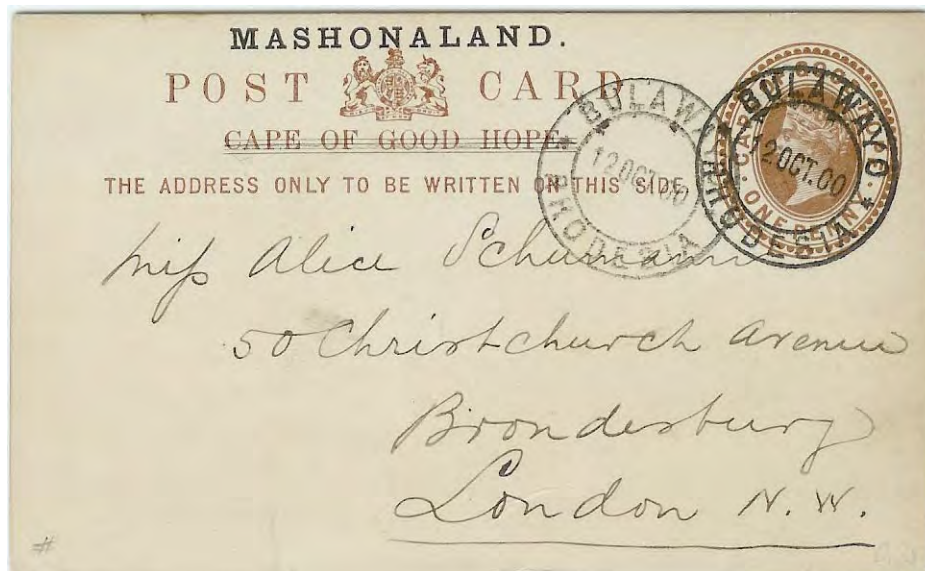 MASHONALAND.
POST CARD
CAPE OF GOOD HOPE
THE ADDRESS ONLY TO BE WRITTEN ON THIS SIDE
BULAWAYO
12 OCT. 00
RHODESIA
BULAWAYO
12 OCT. 00
RHODESIA
CAPE OF GOOD HOPE
ONE PENNY
Miss Alice Schumann
50 Christchurch Avenue
Brondesbury
London N.W.
#